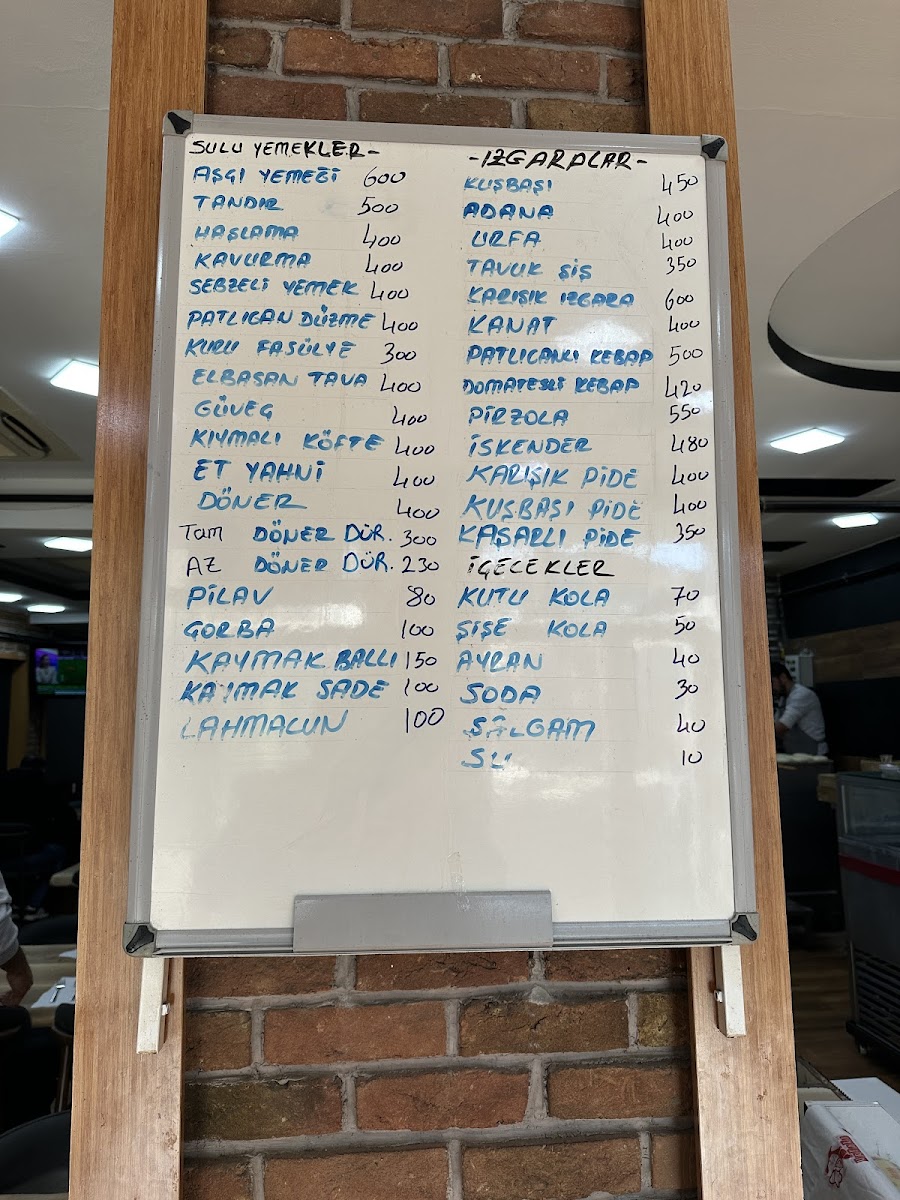 SULU YEMEKLER-
AŞÇI YEMEĞİ 600
TANDIR 500
HAŞLAMA 400
KAVURMA 400
SEBZELİ YEMEK 400
PATLICAN DÜZME 400
KURU FASÜLYE 300
ELBASAN TAVA 400
GÜVEÇ 400
KIYMALI KÖFTE 400
ET YAHNİ 400
DÖNER 400
Tam DÖNER DÜR. 300
AZ DÖNER DÜR. 230
PİLAV 80
ÇORBA 100
KAYMAK BALLI 150
KAYMAK SADE 100
LAHMACUN 100
-IZGARALAR-
KUŞBAŞI 450
ADANA 400
URFA 400
TAVUK ŞİŞ 350
KARIŞIK IZGARA 600
KANAT 400
PATLICANLI KEBAP 500
DOMATESLİ KEBAP 420
PİRZOLA 550
İSKENDER 480
KARIŞIK PİDE 400
KUŞBAŞI PİDE 400
KAŞARLI PİDE 350
İÇECEKLER
KUTU KOLA 70
ŞİŞE KOLA 50
AYRAN 40
SODA 30
ŞALGAM 40
SU 10